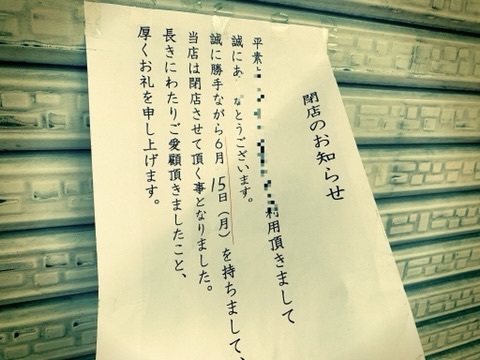 閉店のお知らせ
平素 利用頂きまして
誠にあ とうございます。
誠に勝手ながら6月15日(月)を持ちまして、
当店は閉店させて頂く事となりました。
長きにわたりご愛顧頂きましたこと、
厚くお礼を申し上げます。